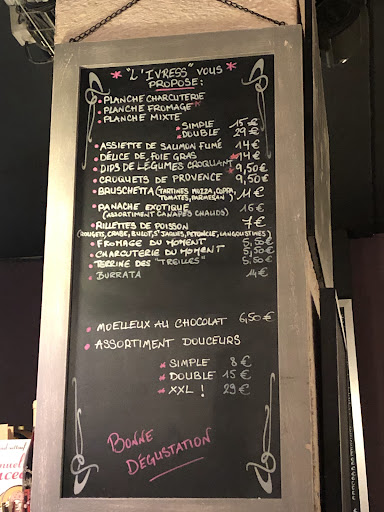 * "L'IVRESS" VOUS *
PROPOSE:
• PLANCHE CHARCUTERIE
• PLANCHE FROMAGE *
• PLANCHE MIXTE
* SIMPLE 15 €
* DOUBLE 29 €
• ASSIETTE DE SAUMON FUMÉ 14 €
• DÉLICE DE FOIE GRAS * 14 €
• DIPS DE LÉGUMES CROQUANT * 9,50 €
• CROQUETS DE PROVENCE * 9,50 €
• BRUSCHETTA (TARTINES MOZZA, COPPA, 11 €
TOMATES, PARMESAN)
• PANACHE EXOTIQUE 16 €
(ASSORTIMENT CANAPÉS CHAUDS)
• RILLETTES DE POISSON 7 €
(ROUGETS, CRABE, BULOT, ST JAQUES, PETONCLE, LANGOUSTINES)
• FROMAGE DU MOMENT 5,50 €
• CHARCUTERIE DU MOMENT 5,50 €
• TERRINE DES "TREILLES" 5,50 €
• BURRATA 14 €
• MOELLEUX AU CHOCOLAT 6,50 €
• ASSORTIMENT DOUCEURS
* SIMPLE 8 €
* DOUBLE 15 €
* XXL ! 29 €
BONNE
DÉGUSTATION